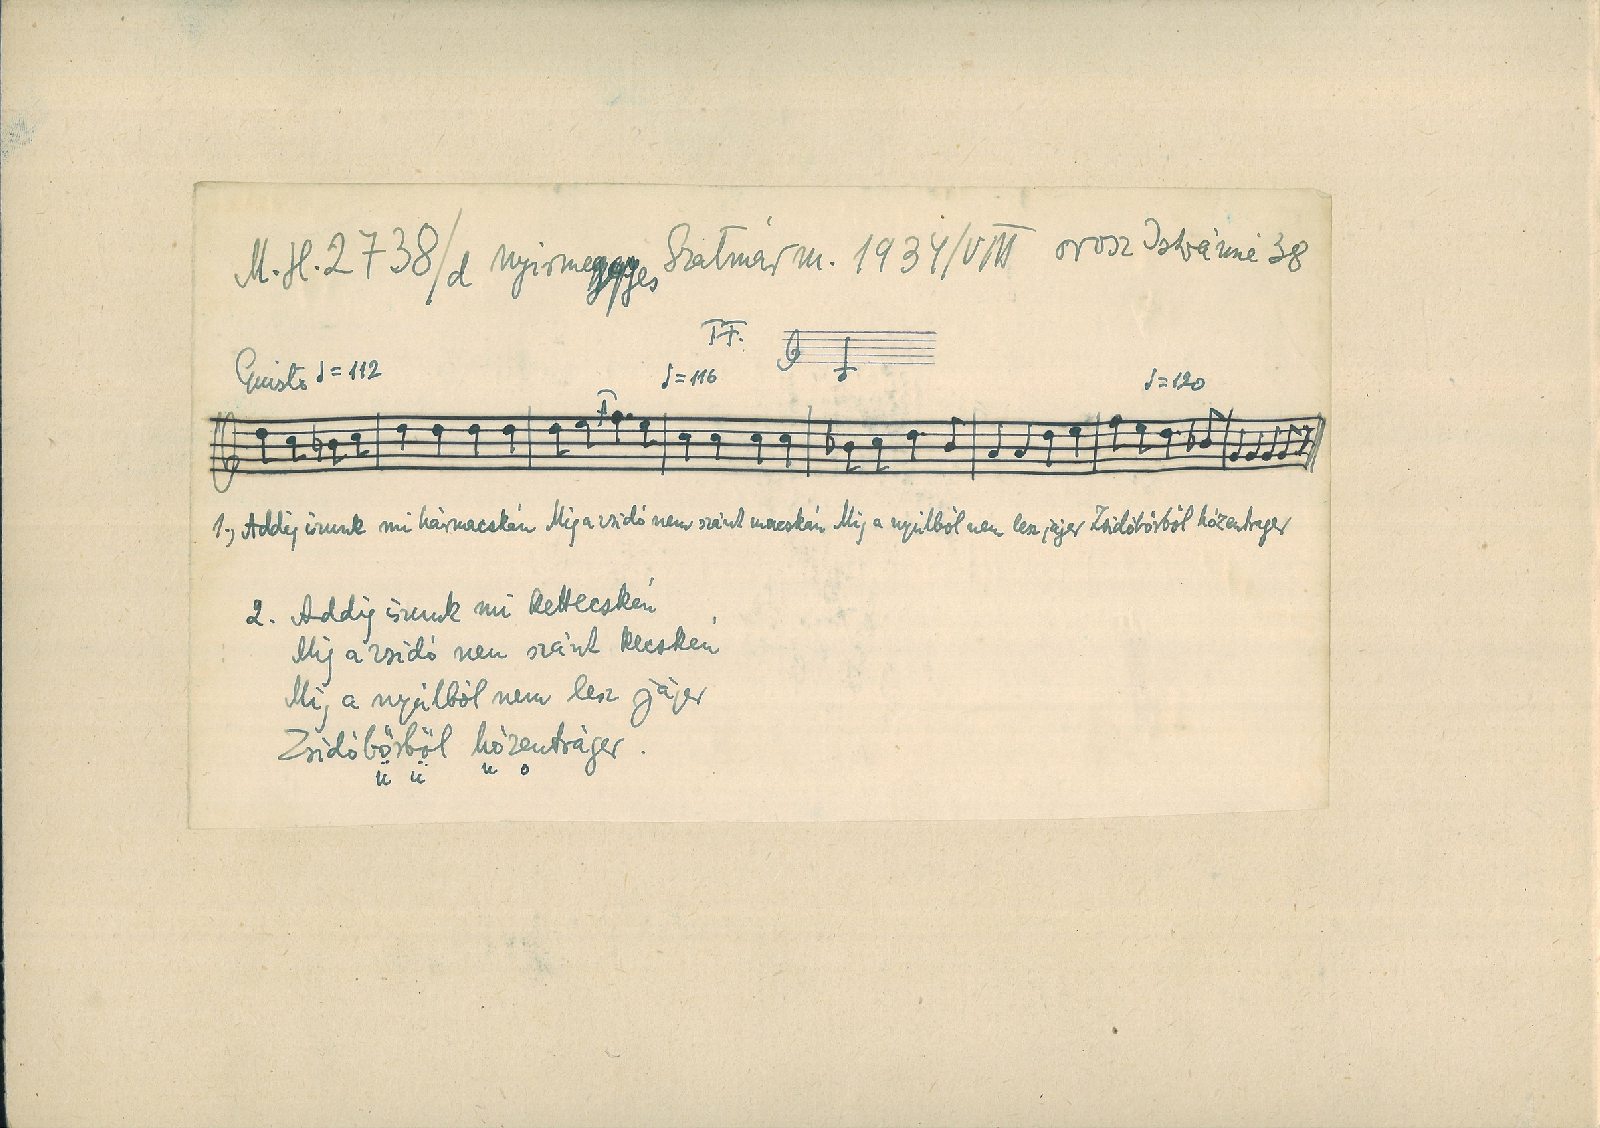 M.H. 2738/d Nyirmeggyes Szatmár m. 1934/VIII Orosz Istvánné 38
TF.
Giusto ♩=112 ♩=116 ♩=120
1., Addig iszunk mi hármacskán Mig a zsidó nem szánt macskán Mig a nyúlból nem lesz jáger Zsidóbőrből hózentrager
2. Addig iszunk mi kettecskén
Mig a zsidó nem szánt kecskén
Mig a nyúlból nem lesz jáger
Zsidóbőrből hózentráger.
ü ü u o